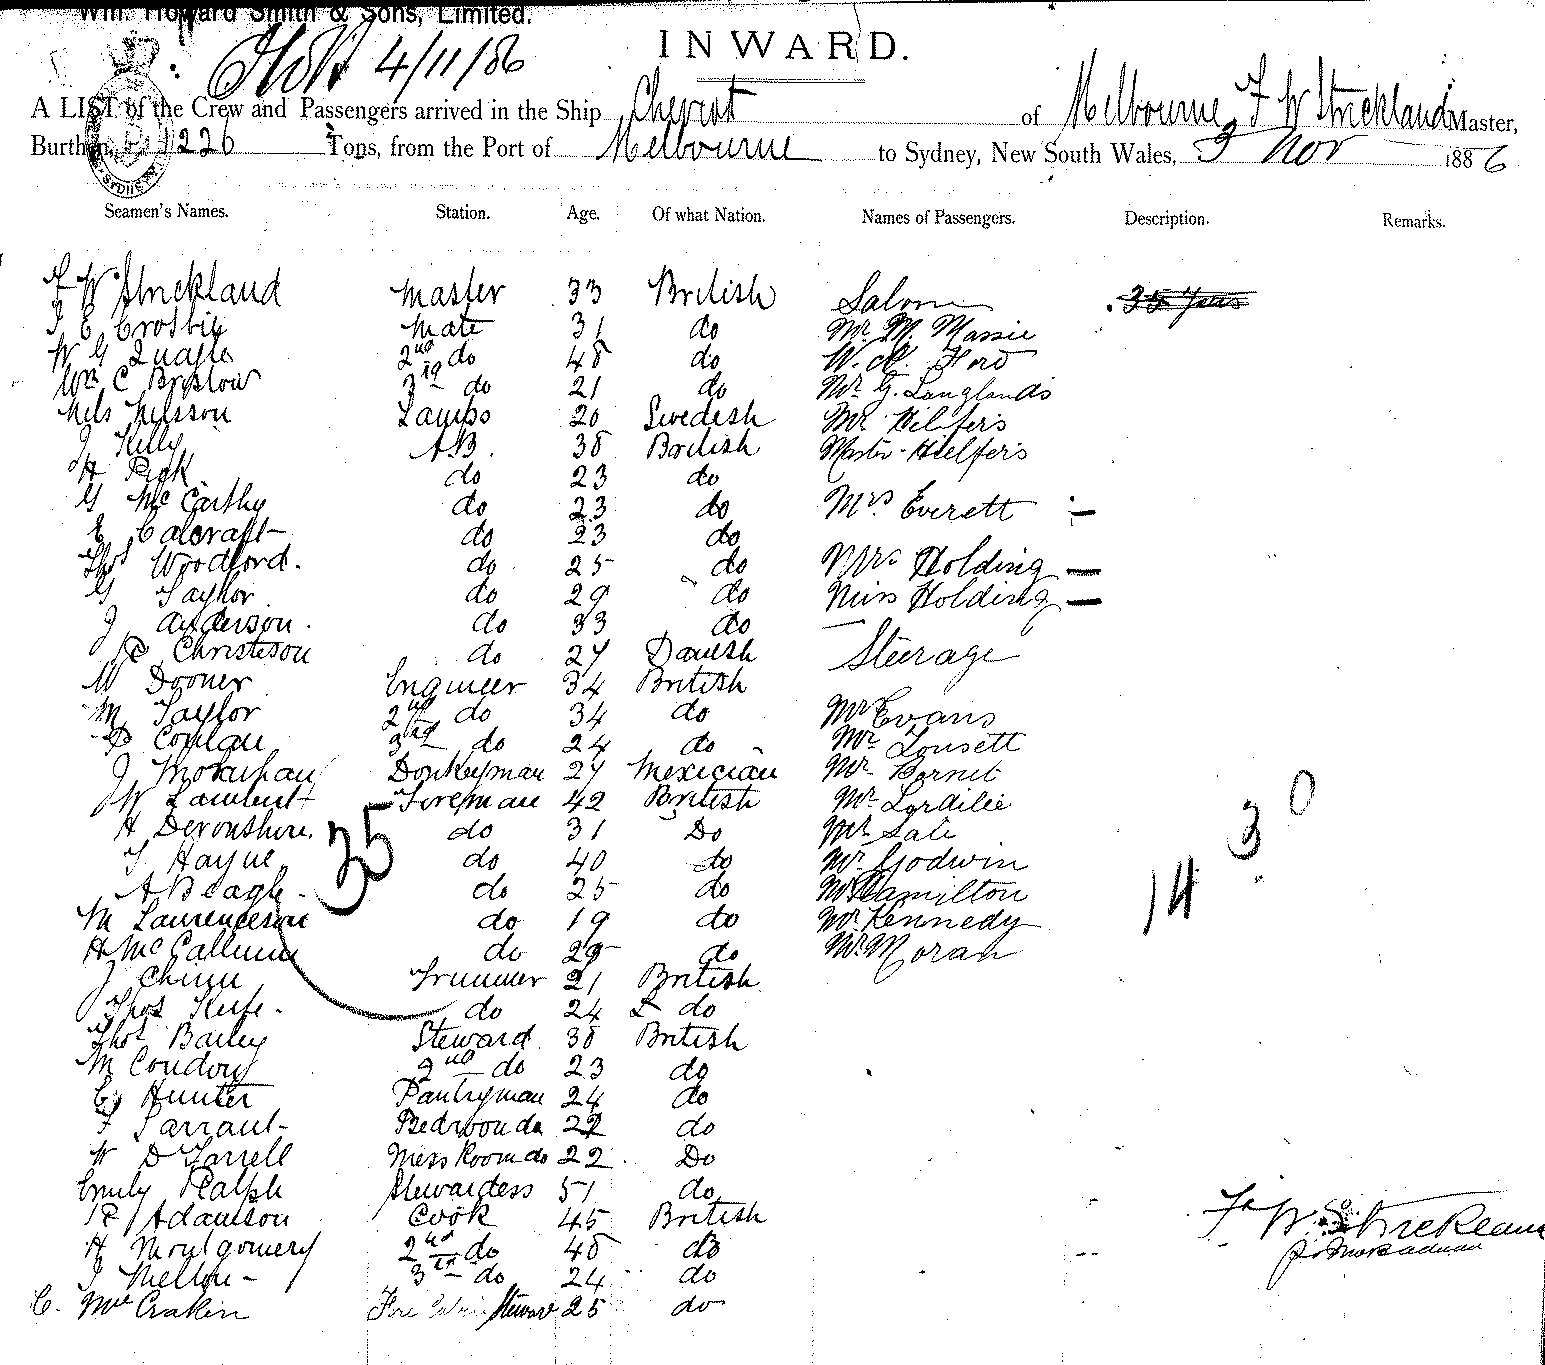 Wm. Howard Smith & Sons, Limited.
4/11/86
INWARD.
A LIST of the Crew and Passengers arrived in the Ship Cheviot of Melbourne, F W Strickland Master,
Burthen, 1226 Tons, from the Port of Melbourne to Sydney, New South Wales, 3 Nov 1886
Seamen's Names. Station. Age. Of what Nation. Names of Passengers. Description. Remarks.
F W Strickland Master 33 British Saloon 35 Years
E Crosbie Mate 31 do Mr. M. Massie
W G Quayle 2nd do 48 do W. Ford
Wm C Bristow 3rd do 21 do Mr. G. Langlands
Nels Nelsson Lamps 20 Swedish Mr
J Kelly AB. 38 British Master Helfers
H Peck do 23 do
G McCarthy do 23 do Mrs Everett –
E Calcraft do 23 do
Thos Woodford. do 25 do Mrs Holding –
G Taylor do 29 do Miss Holding –
J Anderson. do 33 do
P Christeson do 27 Danish Steerage
W Dooner Engineer 34 British
M Taylor 2nd do 34 do Mr Evans
P Conlan 3rd do 24 do Mr
J Donkeyman 27 Mexician Mr Bornet
W Lambert Fireman 42 British Mr
H Devonshire. do 31 Do Mr Sale
T Hayne do 40 do Mr. Godwin
A Beagh. do 25 do Mr Hamilton
M Laurenceson do 19 do Mr. Kennedy
H McCallum do 29 do Mr. Moran
J Chinn Trimmer 21 British
Thos Keefe. do 24 do
Thos Bailey Steward 38 British
M Condon 2nd do 23 do
C Hunter Pantryman 24 do
F Tarrant Bedroom do 22 do
W D Farrell Mess Room do 22 Do
Emily Ralph Stewardess 51 do
R Adamson Cook 45 British
H Montgomery 2nd do 48 do
J Mellor 3rd do 24 do
C. McCrakin Fore Cabin Steward 25 do
35
14
30
F W Strickland